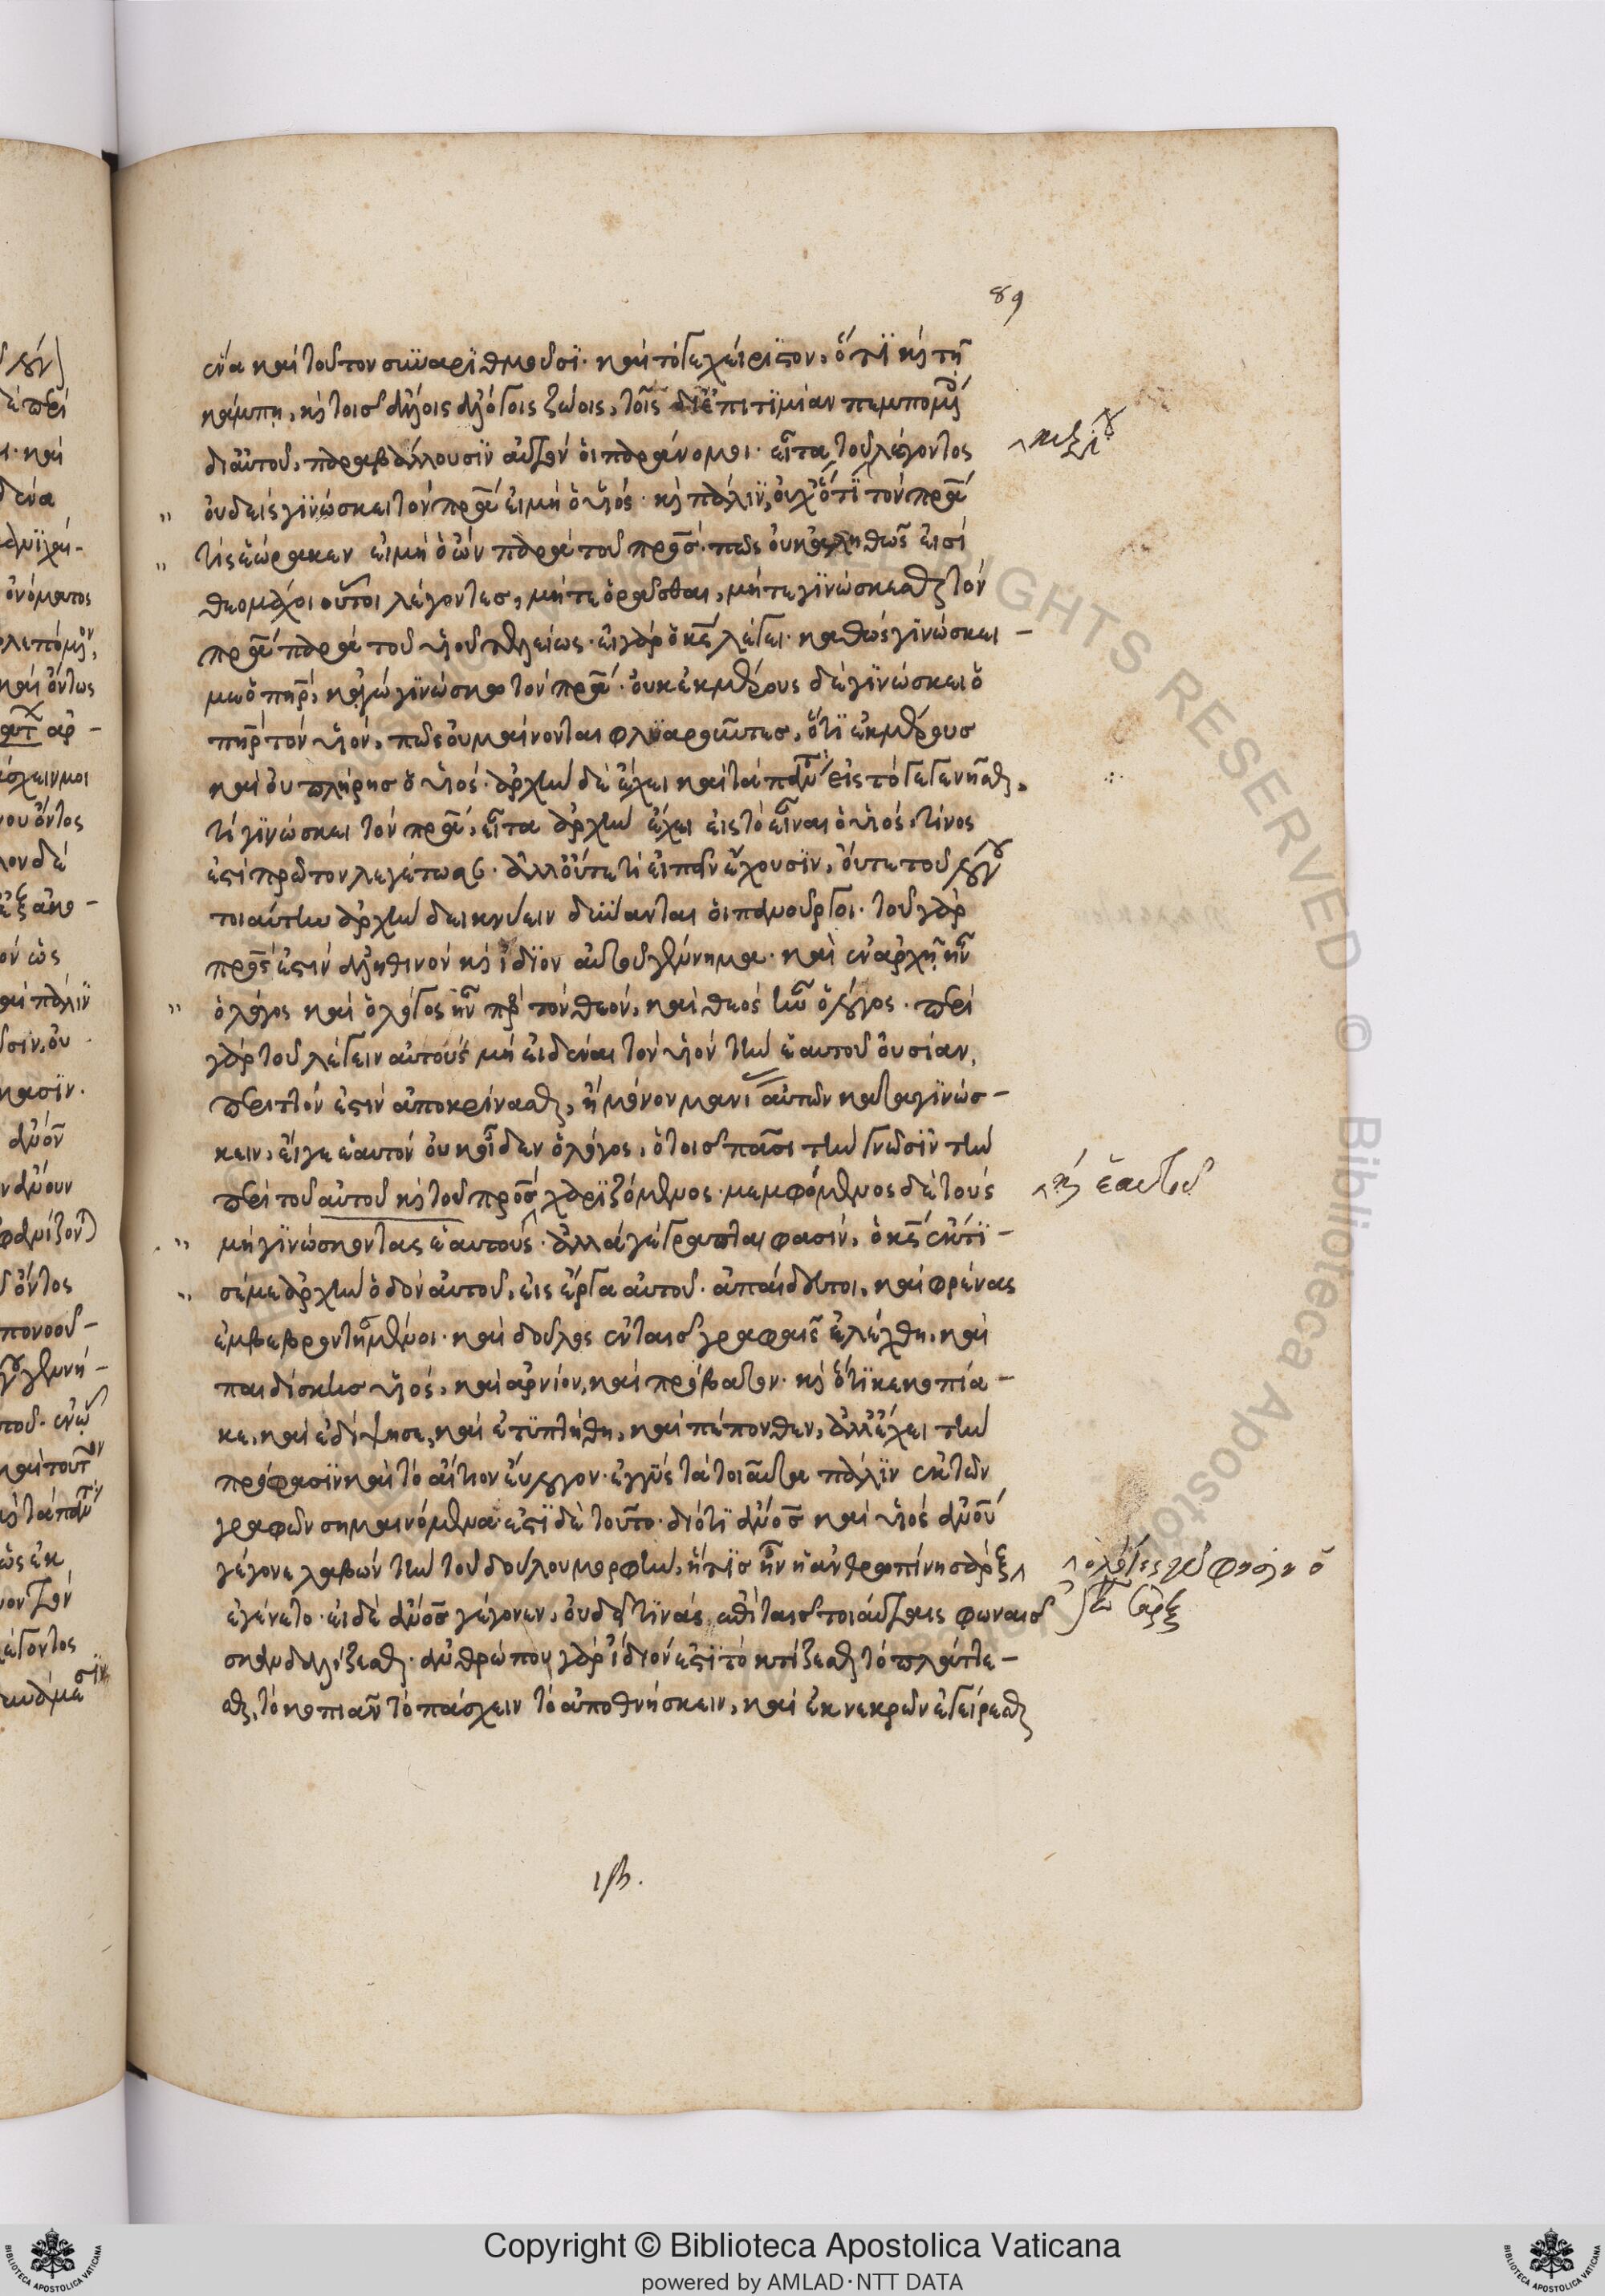 89
ἕνα καὶ τοῦτον συναριθμοῦσι· καὶ τό γε χείριστον, ὅτι καὶ τῇ
κάμπῃ, καὶ τοῖς ἄλλοις ἀλόγοις ζώοις, τοῖς δι' ἐπιτιμίαν πεμπομένοις
δι' αὐτοῦ, παραβάλλουσιν αὐτὸν οἱ παράνομοι· εἶτα τοῦ λέγοντος
οὐδεὶς γινώσκει τὸν πρα εἰ μὴ ὁ υἱός· καὶ πάλιν, οὐχ ὅτι τὸν πρα
τὶς ἑώρακεν εἰ μὴ ὁ ὢν παρὰ τοῦ πρσ· πῶς οὐκ ἀληθῶς εἰσὶ
θεομάχοι οὗτοι λέγοντες, μήτε ὁρᾶσθαι, μήτε γινώσκεσθαι τὸν
πρα παρὰ τοῦ υἱοῦ τελείως· εἰ γὰρ ὁ κς λέγει· καθὼς γινώσκει
με ὁ πηρ, κἀγὼ γινώσκω τὸν πρα· οὐκ ἐκ μέρους δὲ γινώσκει ὁ
πηρ τὸν υἱόν, πῶς οὐ μαίνονται φλυαροῦντες, ὅτι ἐκ μέρους
καὶ οὐ πλήρης ὁ υἱός· ἀρχὴν δὲ ἔχει καὶ τὰ πάντα εἰς τὸ γεγενῆσθαι.
τί γινώσκει τὸν πρα, εἶτα ἀρχὴν ἔχει εἰς τὸ εἶναι ὁ υἱός, τίνος
ἐστὶ πρῶτον λεγέτωσαν· ἀλλ' οὔτε τί εἰπεῖν ἔχουσιν, οὔτε τοῦ λόγου
τοιαύτην ἀρχὴν δεικνύειν δύνανται οἱ πανοῦργοι· τοῦ γὰρ
πρς ἐστιν ἀληθινὸν καὶ ἴδιον αὐτοῦ γέννημα· καὶ ἐν ἀρχῇ ἦν
ὁ λόγος καὶ ὁ λόγος ἦν πρὸς τὸν θεόν, καὶ θεὸς ἦν ὁ λόγος· περὶ
γὰρ τοῦ λέγειν αὐτοὺς μὴ εἰδέναι τὸν υἱὸν τὴν ἑαυτοῦ οὐσίαν,
περιττόν ἐστιν ἀποκρίνασθαι, ἢ μόνον μανί αὐτῶν καταγινώσ-
κειν, εἴγε ἑαυτὸν οὐκ οἶδεν ὁ λόγος, ὁ τοῖς πᾶσι τὴν γνῶσιν τὴν
περὶ τοῦ αὐτοῦ καὶ τοῦ προσ χαριζόμενος· μεμφόμενος δὲ τοὺς
μὴ γινώσκοντας ἑαυτούς· ἀλλὰ γέγραπται φασίν, ὁ κς ἔκτι-
σέ με ἀρχὴν ὁδὸν αὐτοῦ, εἰς ἔργα αὐτοῦ· ἀπαίδευτοι, καὶ φρένας
ἐμβεβροντημένοι· καὶ δοῦλος ἐν ταῖς γραφαῖς ἐλέχθη, καὶ
παιδίσκης υἱός, καὶ ἀρνίον, καὶ πρόβατον· καὶ ὅτι κεκοπία-
κε, καὶ ἐδίψησε, καὶ ἐτυπτήθη, καὶ πέπονθεν, ἀλλ' ἔχει τὴν
πρόφασιν καὶ τὸ αἴτιον εὔλογον· ἐγγὺς τὰ τοιαῦτα πάλιν ἐκ τῶν
γραφῶν σημαινόμενα· ἐστὶ δὲ τοῦτο· διότι ἄνος καὶ υἱὸς ἀνου
γέγονε λαβὼν τὴν τοῦ δούλου μορφήν, ἥτις ἦν ἡ ἀνθρωπίνη σάρξ
ἐγένετο· εἰ δὲ ἄνος γέγονεν, οὐ δεῖ τινὰς ἐπὶ ταῖς τοιαύταις φωναῖς
σκανδαλίζεσθαι· ἀνθρώπου γὰρ ἴδιόν ἐστι τὸ κτίζεσθαι τὸ πλάττε-
σθαι, τὸ κοπιᾶν τὸ πάσχειν τὸ ἀποθνήσκειν, καὶ ἐκ νεκρῶν ἐγείρεσθαι
καὶ ἑαυτοῦ
ὁ λόγος γὰρ φησὶν ὁ
σὰρξ
ιβ.
Copyright © Biblioteca Apostolica Vaticana
powered by AMLAD·NTT DATA